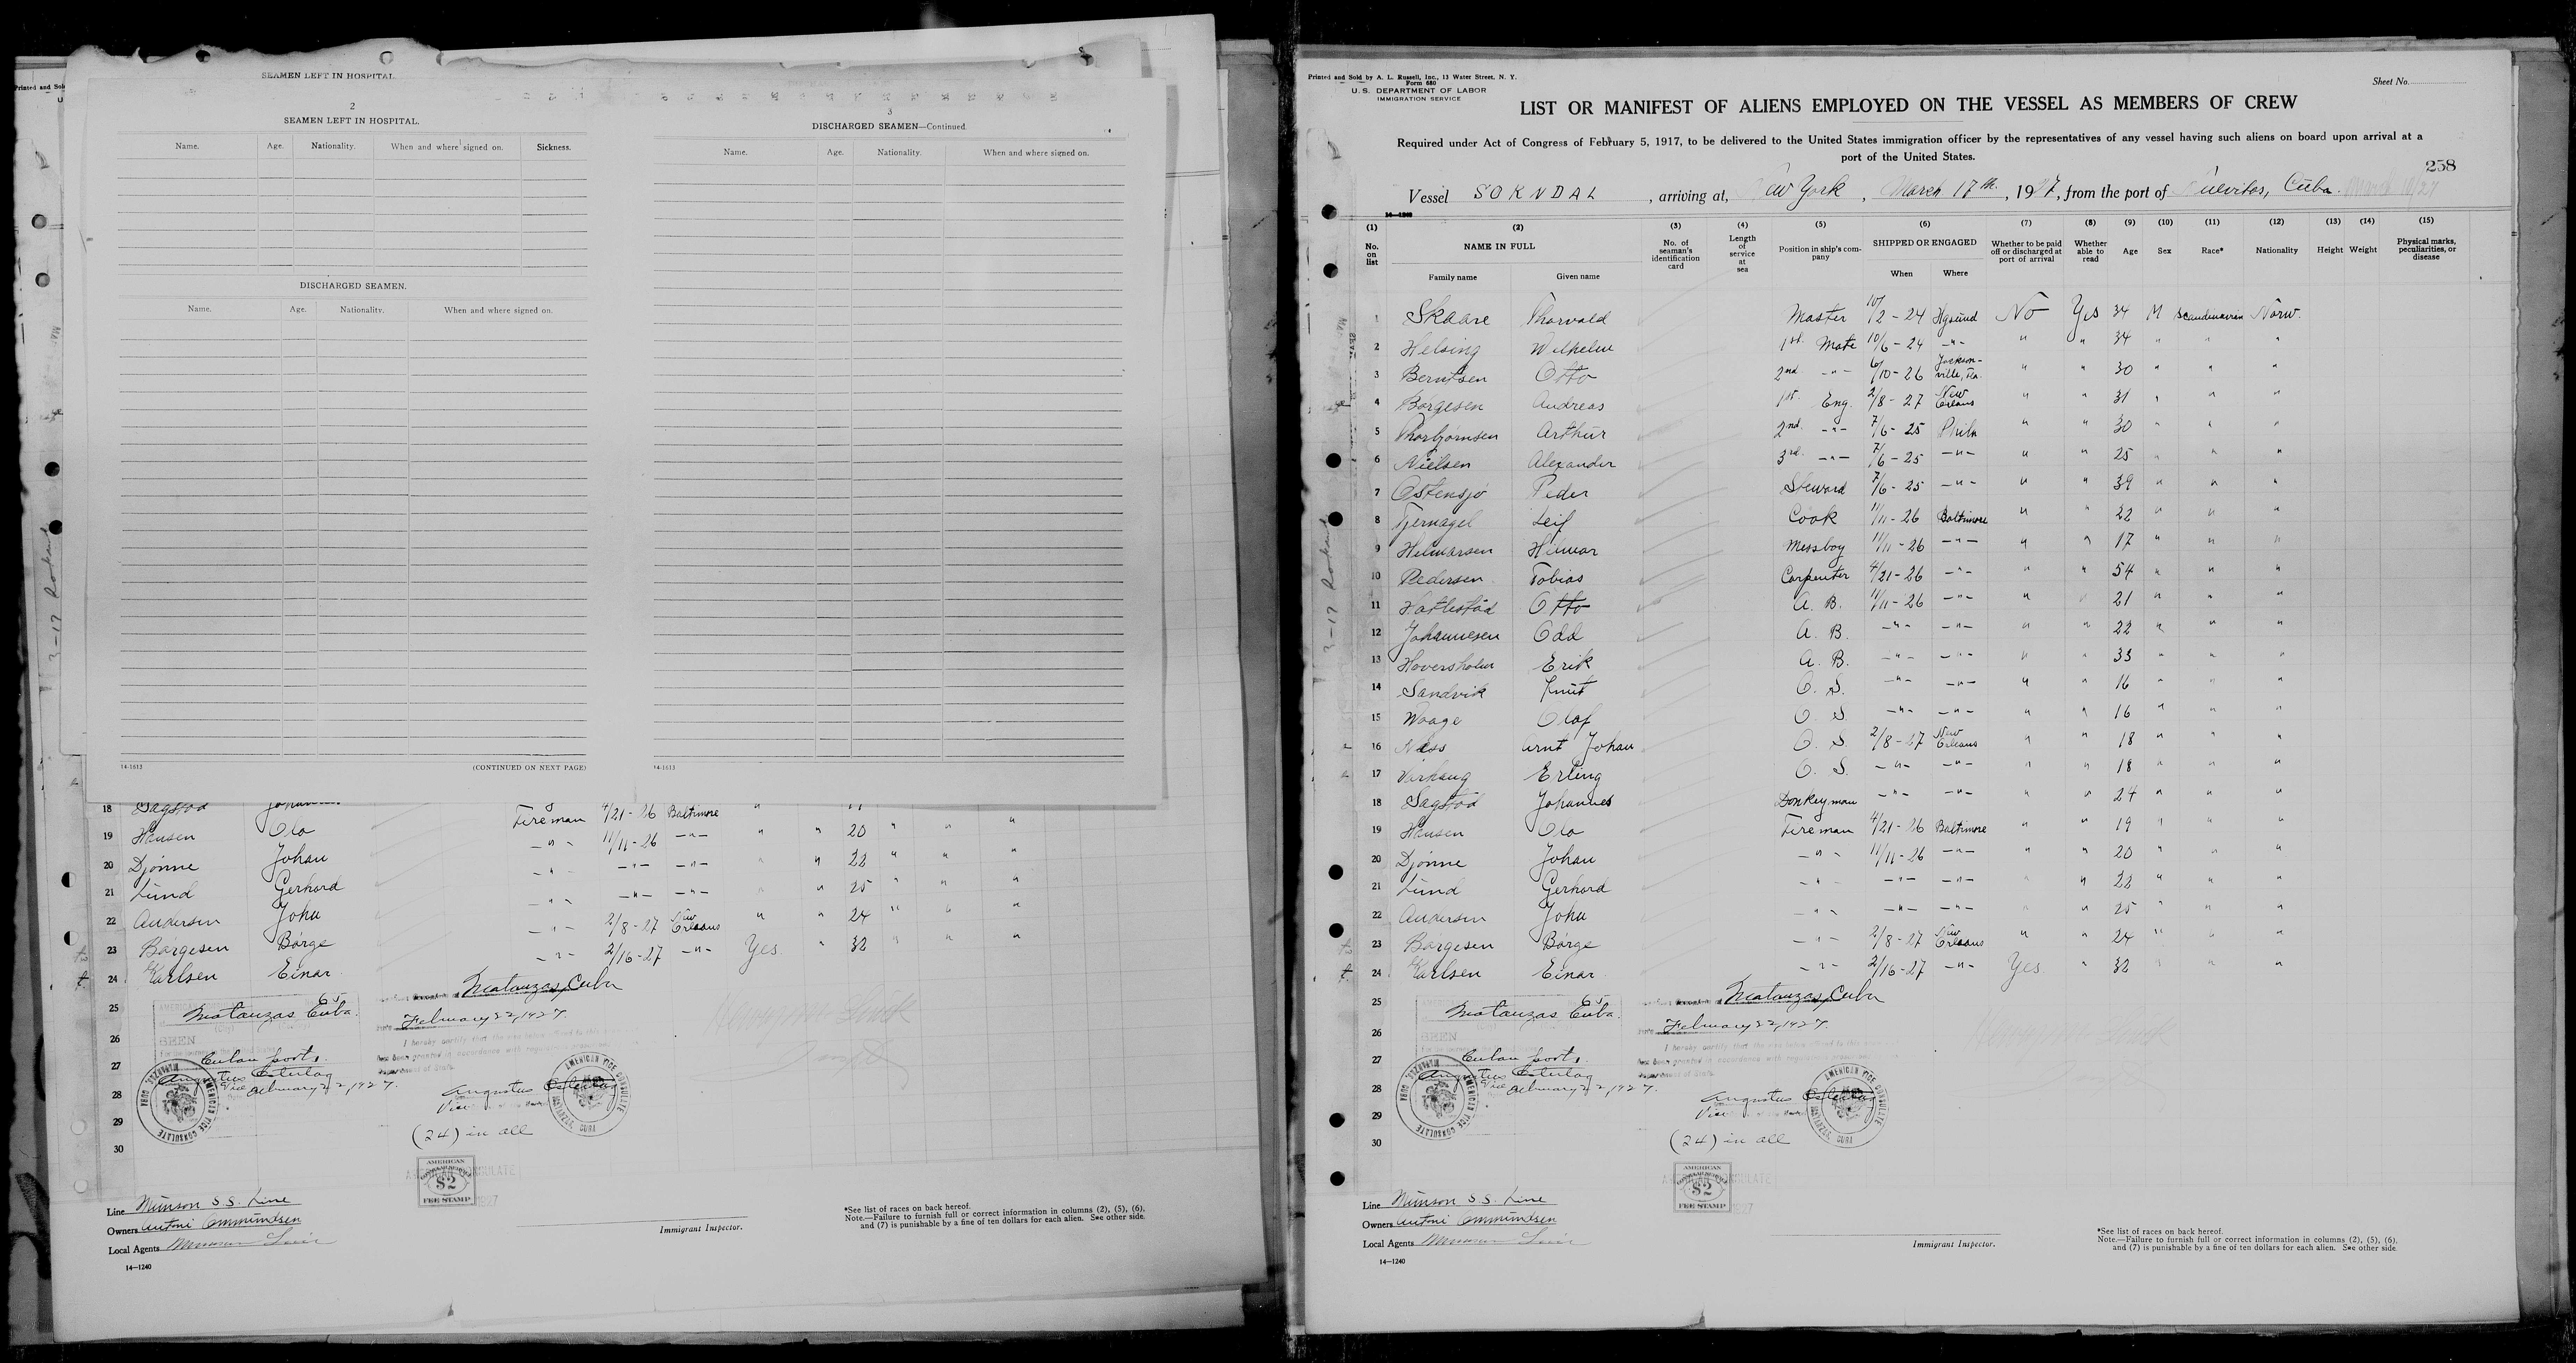 SEAMEN LEFT IN HOSPITAL.
2
SEAMEN LEFT IN HOSPITAL.
Name. Age. Nationality. When and where signed on. Sickness.
DISCHARGED SEAMEN.
Name. Age. Nationality. When and where signed on.
14-1613 (CONTINUED ON NEXT PAGE)
3
DISCHARGED SEAMEN—Continued
Name. Age. Nationality. When and where signed on.
14-1613
18 Sagstad Fireman 4/21-26 Baltimore "
19 Hansen Ola -"- 11/11-26 -"- " " 20 " " "
20 Djönne Johan -"- -"- -"- " " 22 " " "
21 Lund Gerhard -"- -"- -"- " " 25 " " "
22 Andersen John -"- 2/8-27 New Orleans " " 24 " " "
23 Börgesen Börge -"- 2/16-27 -"- Yes " 32 " " "
24 Karlsen Einar
25 65
Matanzas Cuba. Matanzas, Cuba
February 22, 1927.
26 SEEN I hereby certify that
27 Cuban ports.
Augustus Ostertag
28 Vice February 22, 1927.
Augustus Ostertag
Vice
29 (24) in all
30
AMERICAN VICE CONSULATE MATANZAS, CUBA
AMERICAN CONSULAR SERVICE $2 FEE STAMP
Line Munson S.S. Line
Owners Antoni Ommundsen
Local Agents Munson Line
14—1240
Immigrant Inspector.
*See list of races on back hereof.
Note.—Failure to furnish full or correct information in columns (2), (5), (6),
and (7) is punishable by a fine of ten dollars for each alien. See other side.
Printed and Sold by A. L. Russell, Inc., 13 Water Street, N. Y.
Form 680
U. S. DEPARTMENT OF LABOR
IMMIGRATION SERVICE
Sheet No.
LIST OR MANIFEST OF ALIENS EMPLOYED ON THE VESSEL AS MEMBERS OF CREW
Required under Act of Congress of February 5, 1917, to be delivered to the United States immigration officer by the representatives of any vessel having such aliens on board upon arrival at a
port of the United States.
258
Vessel SOKNDAL, arriving at, New York, March 17th, 1927, from the port of Nuevitas, Cuba. March 10/27
14—1240
(1) (2) (3) (4) (5) (6) (7) (8) (9) (10) (11) (12) (13) (14) (15)
No. on list NAME IN FULL Family name Given name No. of seaman's identification card Length of service at sea Position in ship's company SHIPPED OR ENGAGED When Where Whether to be paid off or discharged at port of arrival Whether able to read Age Sex Race* Nationality Height Weight Physical marks, peculiarities, or disease
1 Skaare Thorvald Master 10/2-24 Hgsund No Yes 34 M Scandinavian Norw.
2 Helsing Wilhelm 1st. Mate 10/6-24 -"- " " 34 " " "
3 Berntsen Otto 2nd -"- 6/10-26 Jacksonville, Fla. " " 30 " " "
4 Börgesen Andreas 1st. Eng. 2/8-27 New Orleans " " 31 " " "
5 Thorbjörnsen Arthur 2nd. -"- 7/6-25 Phila " " 30 " " "
6 Nielsen Alexander 3rd. -"- 7/6-25 -"- " " 25 " " "
7 Östensjö Peder Steward 7/6-25 -"- " " 39 " " "
8 Tjernagel Leif Cook 11/11-26 Baltimore " " 22 " " "
9 Helmarsen Hilmar Messboy 11/11-26 -"- " " 17 " " "
10 Pedersen Tobias Carpenter 4/21-26 -"- " " 54 " " "
11 Hatlestad Otto A. B. 11/11-26 -"- " " 21 " " "
12 Johannesen Odd A. B. -"- -"- " " 22 " " "
13 Hoversholm Erik A. B. -"- -"- " " 33 " " "
14 Sandvik Knut O. S. -"- -"- " " 16 " " "
15 Waage Olaf O. S. -"- -"- " " 16 " " "
16 Ness Arnt Johan O. S. 2/8-27 New Orleans " " 18 " " "
17 Virkaug Erling O. S. -"- -"- " " 18 " " "
18 Sagstad Johannes Donkeyman -"- -"- " " 24 " " "
19 Hansen Ola Fireman 4/21-26 Baltimore " " 19 " " "
20 Djönne Johan -"- 11/11-26 -"- " " 20 " " "
21 Lund Gerhard -"- -"- -"- " " 22 " " "
22 Andersen John -"- -"- -"- " " 25 " " "
23 Börgesen Börge -"- 2/8-27 New Orleans " " 24 " " "
24 Karlsen Einar -"- 2/16-27 -"- Yes " 32 " " "
25 65
Matanzas Cuba. Matanzas, Cuba
February 22, 1927.
26 SEEN I hereby certify that
27 Cuban ports.
Augustus Ostertag
28 Vice February 22, 1927.
Augustus Ostertag
Vice
29
30 (24) in all
AMERICAN VICE CONSULATE MATANZAS, CUBA
AMERICAN CONSULAR SERVICE $2 FEE STAMP
Line Munson S.S. Line
Owners Antoni Ommundsen
Local Agents Munson Line
14—1240
Immigrant Inspector.
*See list of races on back hereof.
Note.—Failure to furnish full or correct information in columns (2), (5), (6),
and (7) is punishable by a fine of ten dollars for each alien. See other side.